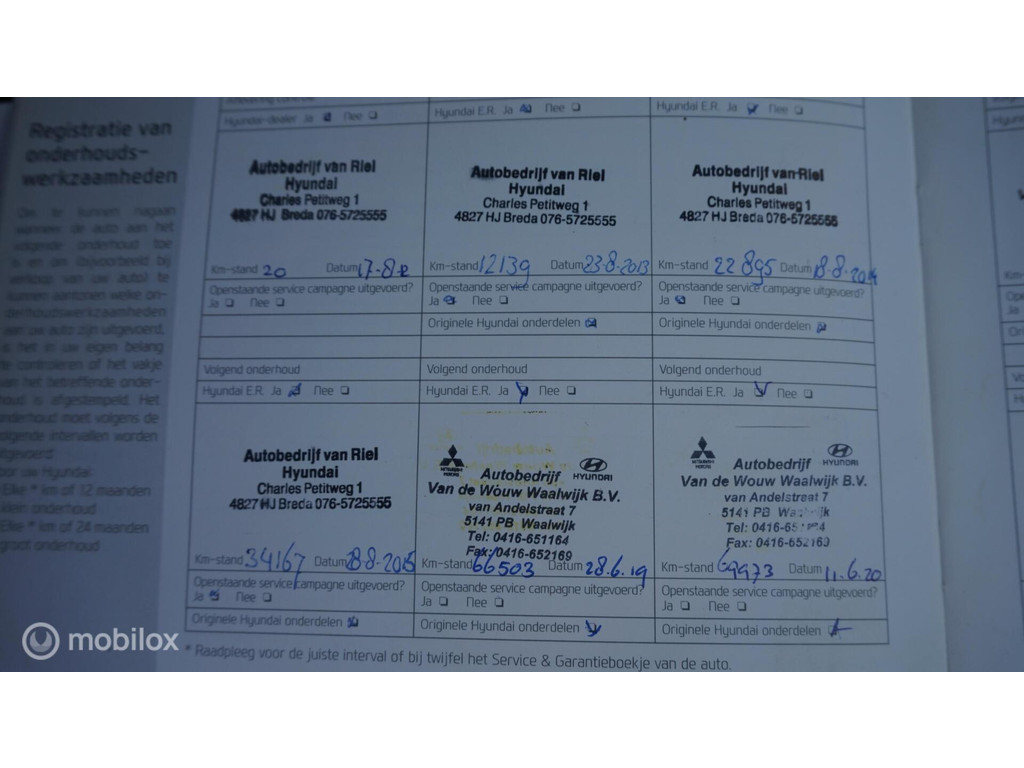 Registratie van
onderhouds-
werkzaamheden
Om te kunnen nagaan
wanneer de auto aan het
volgende onderhoud toe
is en om (bijvoorbeeld bij
verkoop van uw auto) te
kunnen aantonen welke on-
derhoudswerkzaamheden
aan uw auto zijn uitgevoerd,
is het in uw eigen belang
te controleren of het vakje
van het betreffende onder-
houd is afgestempeld. Het
onderhoud moet volgens de
volgende intervallen worden
uitgevoerd
voor uw Hyundai:
Elke * km of 12 maanden
klein onderhoud
Elke * km of 24 maanden
groot onderhoud
Hyundai-dealer Ja Nee
Hyundai E.R. Ja Nee
Hyundai E.R. Ja Nee
Autobedrijf van Riel
Hyundai
Charles Petitweg 1
4827 HJ Breda 076-5725555
Km-stand 20 Datum 17-8-12
Openstaande service campagne uitgevoerd?
Ja Nee
Autobedrijf van Riel
Hyundai
Charles Petitweg 1
4827 HJ Breda 076-5725555
Km-stand 12139 Datum 23-8-2013
Openstaande service campagne uitgevoerd?
Ja Nee
Originele Hyundai onderdelen
Autobedrijf van Riel
Hyundai
Charles Petitweg 1
4827 HJ Breda 076-5725555
Km-stand 22895 Datum 18-8-2014
Openstaande service campagne uitgevoerd?
Ja Nee
Originele Hyundai onderdelen
Volgend onderhoud
Hyundai E.R. Ja Nee
Volgend onderhoud
Hyundai E.R. Ja Nee
Volgend onderhoud
Hyundai E.R. Ja Nee
Autobedrijf van Riel
Hyundai
Charles Petitweg 1
4827 HJ Breda 076-5725555
Km-stand 34167 Datum 28-8-2015
Openstaande service campagne uitgevoerd?
Ja Nee
Originele Hyundai onderdelen
MITSUBISHI
MOTORS
HYUNDAI
Autobedrijf
Van de Wouw Waalwijk B.V.
van Andelstraat 7
5141 PB Waalwijk
Tel: 0416-651164
Fax: 0416-652169
Km-stand 66503 Datum 28.6.19
Openstaande service campagne uitgevoerd?
Ja Nee
Originele Hyundai onderdelen
MITSUBISHI
MOTORS
HYUNDAI
Autobedrijf
Van de Wouw Waalwijk B.V.
van Andelstraat 7
5141 PB
Tel:
Fax: 0416-652169
Km-stand 69973 Datum 11.6.20
Openstaande service campagne uitgevoerd?
Ja Nee
Originele Hyundai onderdelen
* Raadpleeg voor de juiste interval of bij twijfel het Service & Garantieboekje van de auto.
mobilox